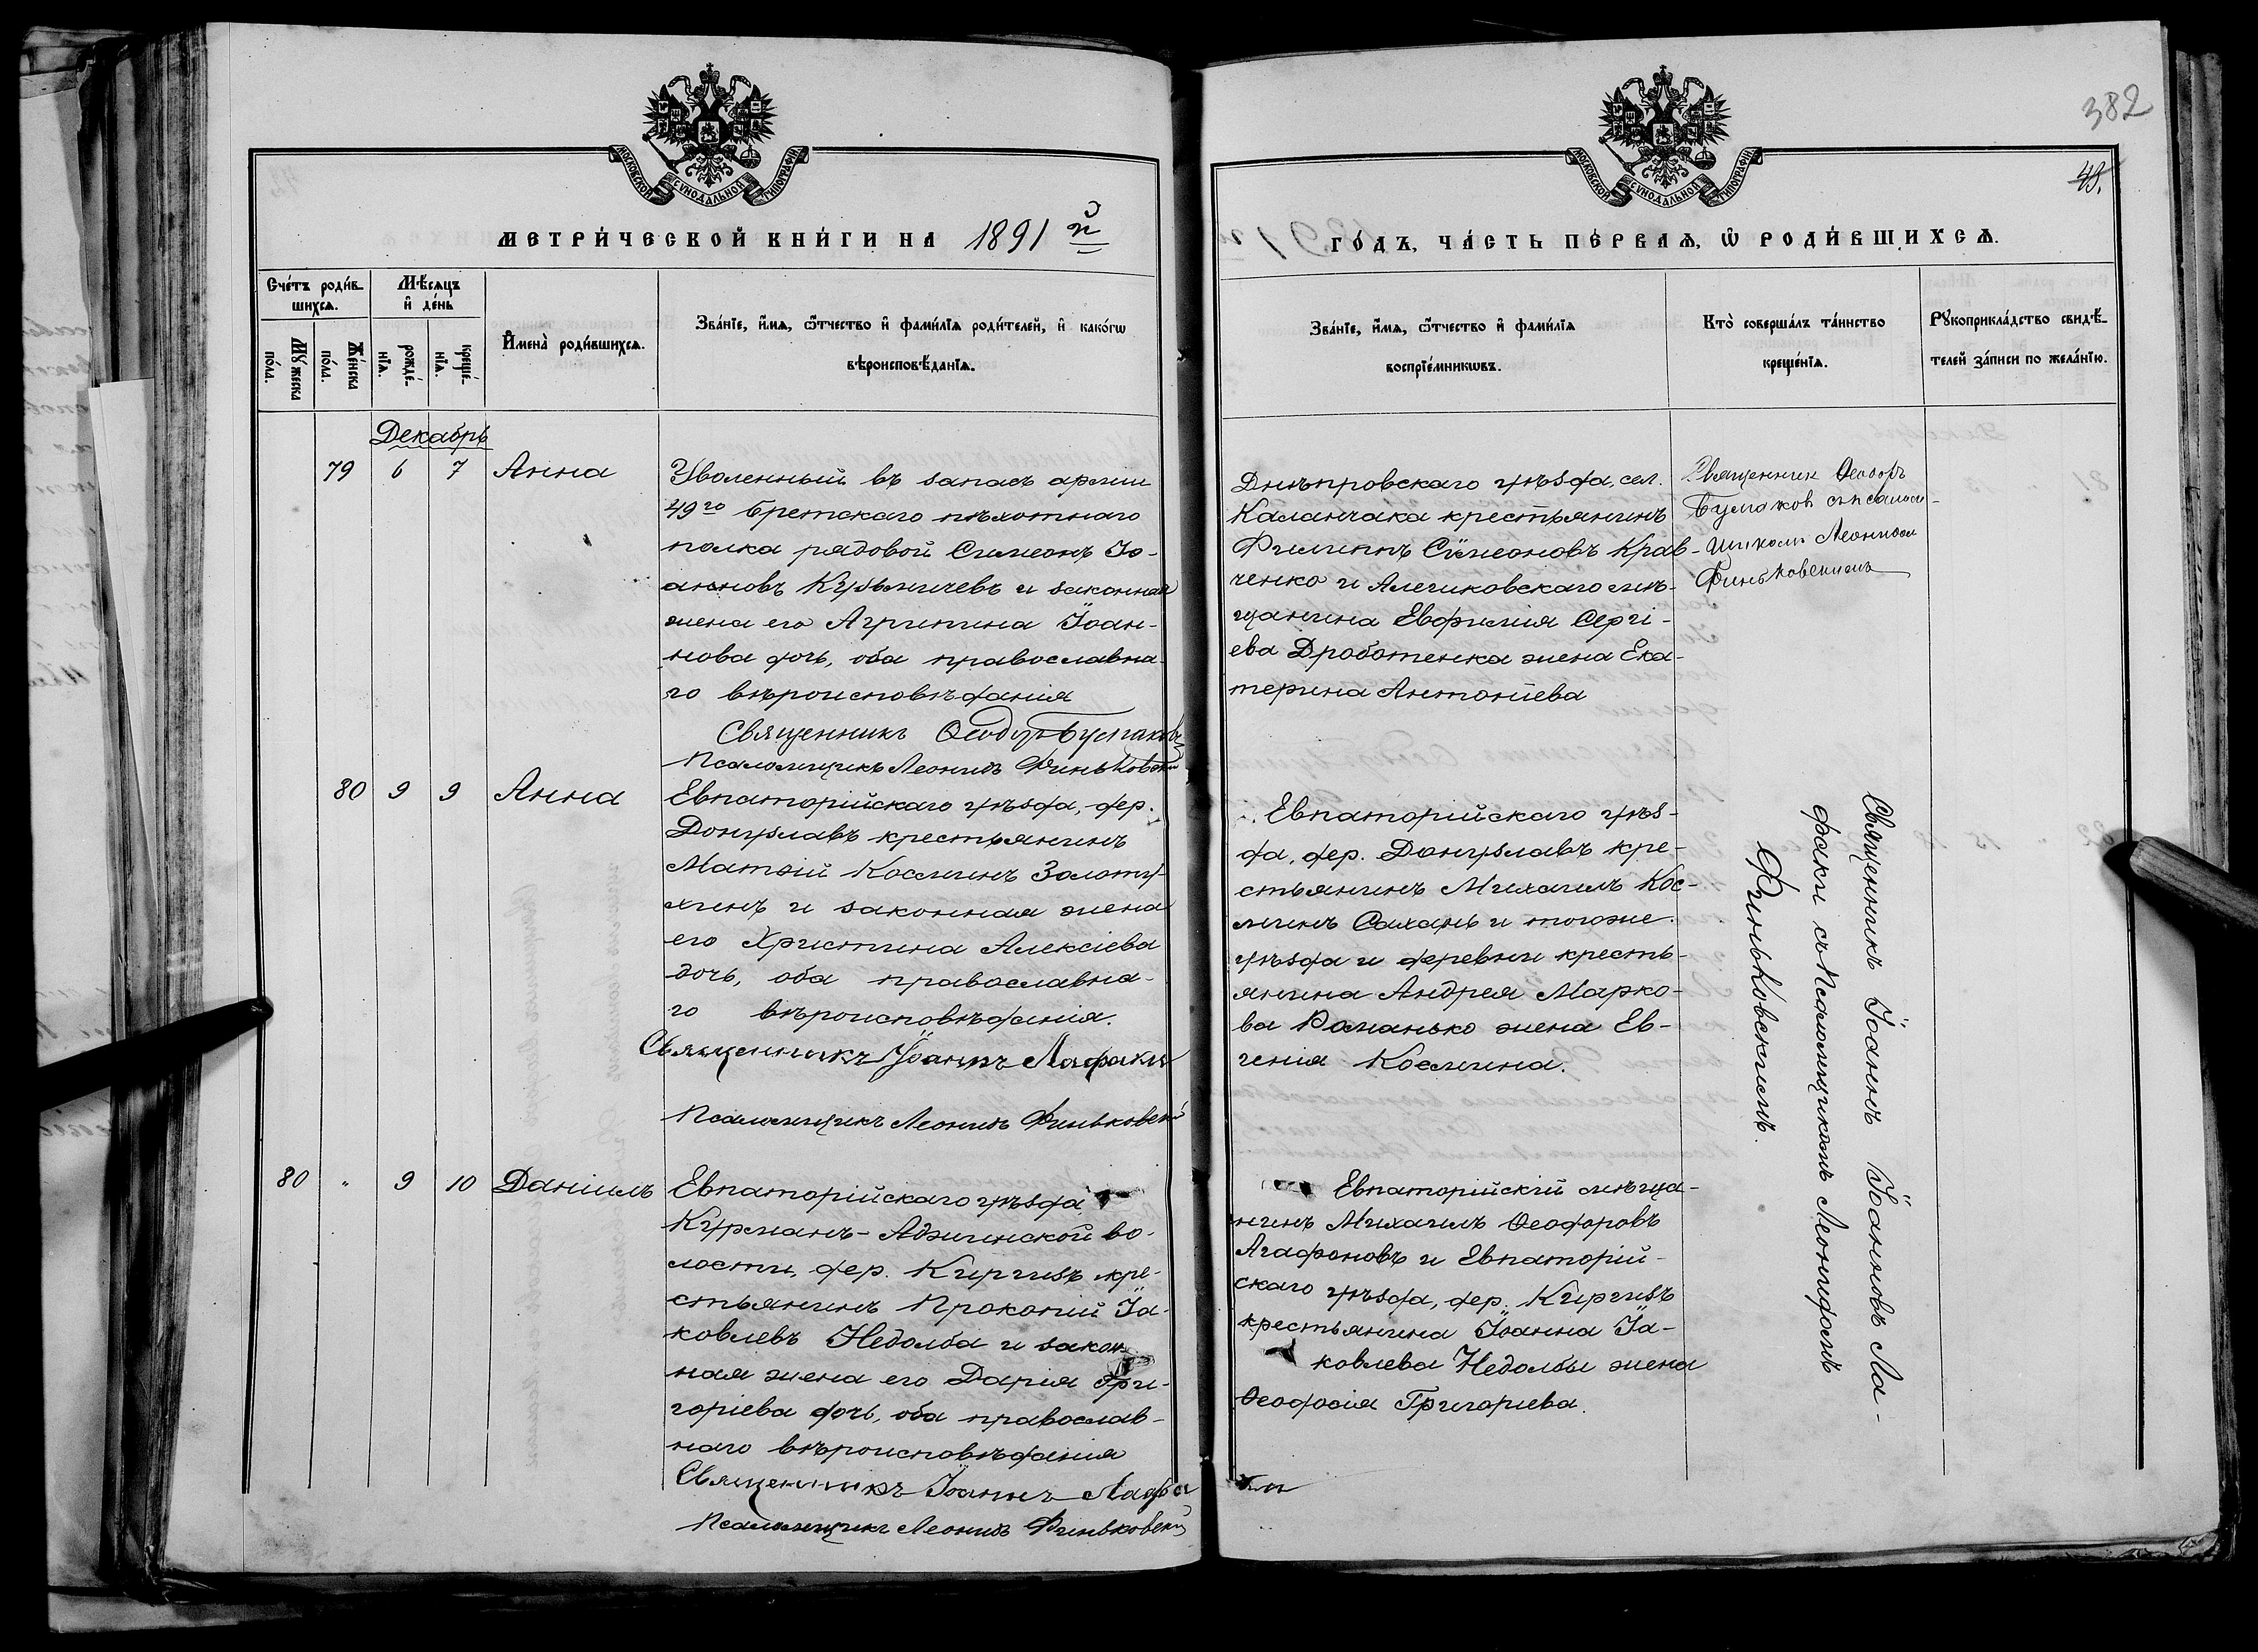 382
49.
МОСКОВСКОЙ СУНОДАЛЬНОЙ ТИПОГРАФІИ
МОСКОВСКОЙ СУНОДАЛЬНОЙ ТИПОГРАФІИ
МЕТРИ́ЧЕСКОЙ КНИ́ГИ НА 1891 й
ГО́ДЪ, ЧА́СТЬ ПЕ́РВАѦ, Ѿ РОДИ́ВШИХСѦ.
Сче́тъ роди́вшихсѧ.
Му́жеска по́ла.
Же́нска по́ла.
Мѣ́сѧцъ и҆ де́нь
рожде́нїѧ.
креще́нїѧ.
И҆мена̀ роди́вшихсѧ.
Зва́нїе, и҆́мѧ, ѻ҆́тчество и҆ фами́лїѧ роди́телей, и҆ како́гѡ
вѣроисповѣ́данїѧ.
Зва́нїе, и҆́мѧ, ѻ҆́тчество и҆ фами́лїѧ
воспрїе́мникѡвъ.
Кто̀ соверша́лъ та́инство
креще́нїѧ.
Рꙋкоприкла́дство свидѣ́-
телей за́писи по жела́нїю.
Декабрь
79 6 7 Анна
Уволенный въ запасъ арміи
49го Брестскаго пѣхотнаго
полка рядовой Симеонъ Іо-
анновъ Кузьмичевъ и законная
жена его Агрипина Іоан-
нова дочь, оба православна-
го вѣроисповѣданія
Священникъ Ѳеодоръ Бугмаковъ
Псаломщикъ Леонидъ Финьковскій
Днѣпровскаго уѣзда, сел.
Каланчака крестьянинъ
Филиппъ Симеоновъ Крав-
ченко и Алешковскаго мѣ-
щанина Евфимія Сергі-
ева Дроботенка жена Ека-
терина Антоніева
Священник Ѳеодоръ
съ псалом-
щиком Леонидом
Финьковскимъ
80 9 9 Анна
Евпаторійскаго уѣзда, дер.
Донузлавъ крестьянинъ
Матѳій Космин Золоту-
хинъ и законная жена
его Христина Алексіева
дочь, оба православна-
го вѣроисповѣданія.
Священникъ Іоаннъ Лафаки
Псаломщикъ Леонидъ Финьковскій
Евпаторійскаго уѣз-
да, дер. Донузлавъ кре-
стьянинъ Михаилъ Кос-
минъ Сахань и тогоже
уѣзда и деревни кресть-
янина Андрея Марко-
ва Романько жена Ев-
генія Космина.
Священникъ Іоаннъ Іоанновъ Ла-
факи съ Псаломщикомъ Леонидомъ
Финьковскимъ.
80 " 9 10 Даніилъ
Евпаторійскаго уѣзда
Курманъ-Аджинской во-
лости, дер. Киргизъ кре-
стьянинъ Прокопій Іа-
ковлевъ Недолба и закон-
ная жена его Дарія Гри-
горіева дочь, оба православ-
наго вѣроисповѣданія
Священникъ Іоаннъ Лафаки
Псаломщикъ Леонидъ Финьковскій
Евпаторійскій мѣща-
нинъ Михаилъ Ѳеодоровъ
Агафоновъ и Евпаторій-
скаго уѣзда, дер. Киргизъ
крестьянина Іоанна Іа-
ковлева Недолбы жена
Ѳеодосія Григориева.